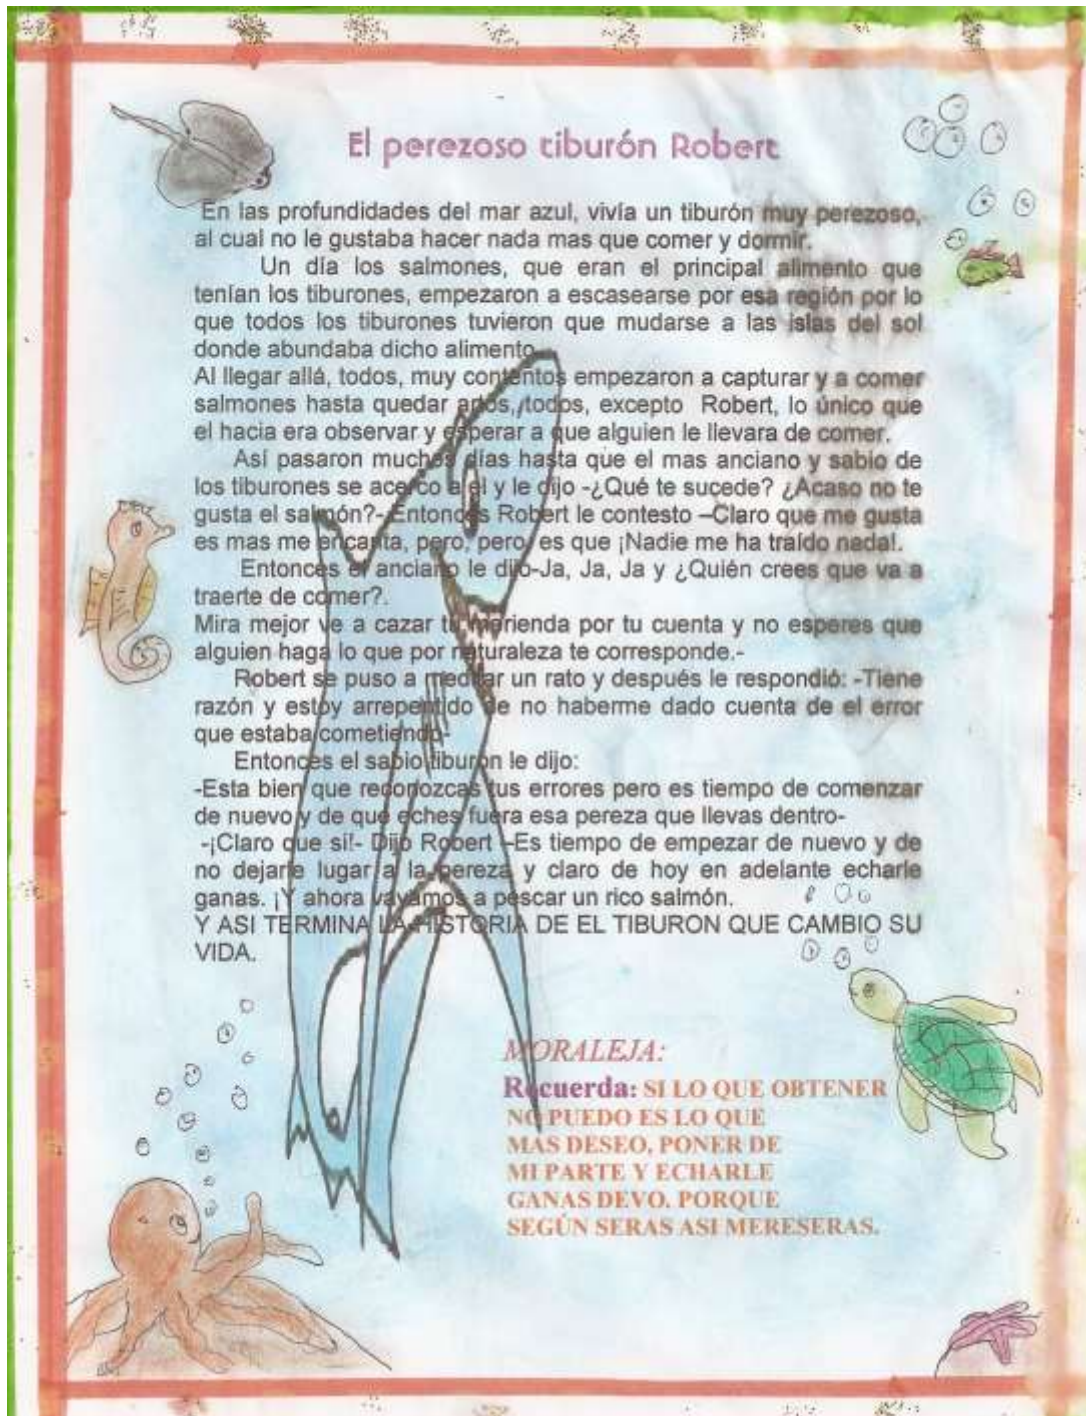 El perezoso tiburón Robert
En las profundidades del mar azul, vivía un tiburón muy perezoso,
al cual no le gustaba hacer nada mas que comer y dormir.
Un día los salmones, que eran el principal alimento que
tenían los tiburones, empezaron a escasearse por esa región por lo
que todos los tiburones tuvieron que mudarse a las islas del sol
donde abundaba dicho alimento.
Al llegar allá, todos, muy contentos empezaron a capturar y a comer
salmones hasta quedar artos, todos, excepto Robert, lo único que
el hacia era observar y esperar a que alguien le llevara de comer.
Así pasaron muchos días hasta que el mas anciano y sabio de
los tiburones se acerco a el y le dijo -¿Qué te sucede? ¿Acaso no te
gusta el salmón?- Entonces Robert le contesto –Claro que me gusta
es mas me encanta, pero, pero, es que ¡Nadie me ha traído nada!.
Entonces el anciano le dijo-Ja, Ja, Ja y ¿Quién crees que va a
traerte de comer?.
Mira mejor ve a cazar tu merienda por tu cuenta y no esperes que
alguien haga lo que por naturaleza te corresponde.-
Robert se puso a meditar un rato y después le respondió: -Tiene
razón y estoy arrepentido de no haberme dado cuenta de el error
que estaba cometiendo-
Entonces el sabio tiburon le dijo:
-Esta bien que reconozcas tus errores pero es tiempo de comenzar
de nuevo y de que eches fuera esa pereza que llevas dentro-
-¡Claro que sí!- Dijo Robert –Es tiempo de empezar de nuevo y de
no dejarle lugar a la pereza y claro de hoy en adelante echarle
ganas. ¡Y ahora vayamos a pescar un rico salmón.
Y ASI TERMINA LA HISTORIA DE EL TIBURON QUE CAMBIO SU
VIDA.
MORALEJA:
Recuerda: SI LO QUE OBTENER
NO PUEDO ES LO QUE
MAS DESEO, PONER DE
MI PARTE Y ECHARLE
GANAS DEVO. PORQUE
SEGÚN SERAS ASI MERESERAS.